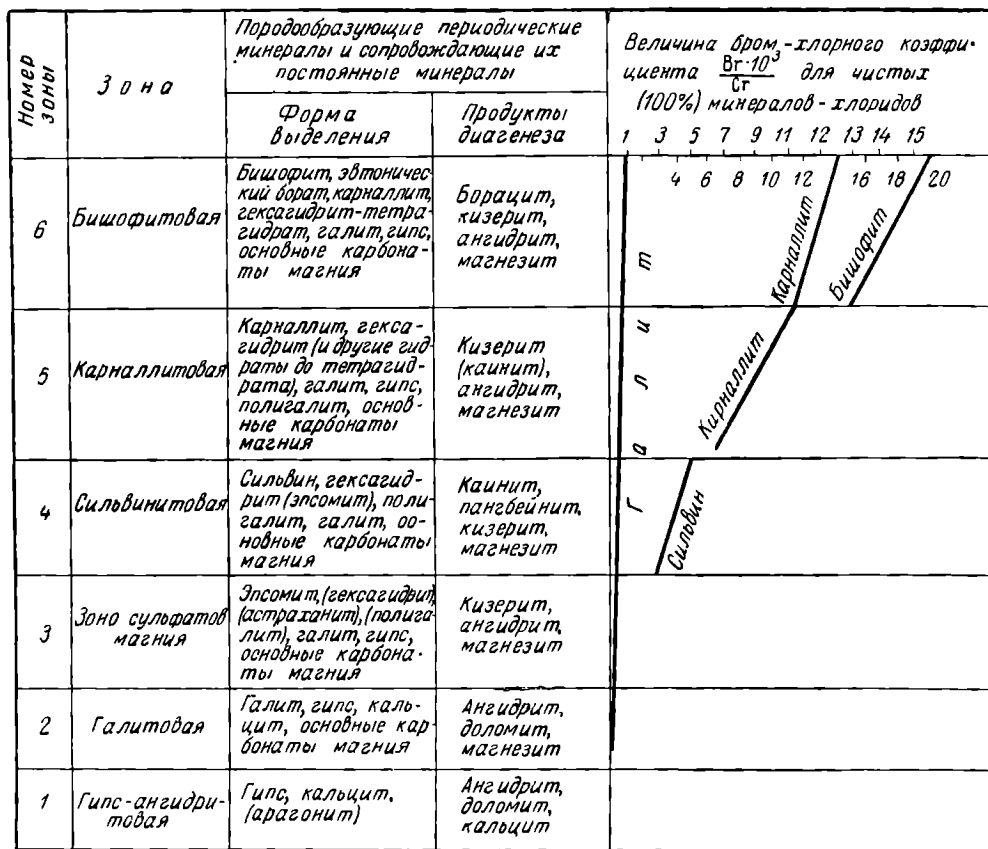 Номер зоны
Зона
Породообразующие периодические
минералы и сопровождающие их
постоянные минералы
Форма
выделения
Продукты
диагенеза
Величина бром-хлорного коэффи-
циента Br·10³/Cr для чистых
(100%) минералов-хлоридов
1 3 5 7 9 11 12 13 14 15
4 6 8 10 12 16 18 20
6
Бишофитовая
Бишофит, эвтоничес-
кий борат, карналлит,
гексагидрит-тетра-
гидрат, галит, гипс,
основные карбона-
ты магния
Борацит,
кизерит,
ангидрит,
магнезит
Карналлит
Бишофит
5
Карналлитовая
Карналлит, гекса-
гидрит (и другие гид-
раты до тетрагид-
рата), галит, гипс,
полигалит, основ-
ные карбонаты
магния
Кизерит
(каинит),
ангидрит,
магнезит
Кирналлит
4
Сильвинитовая
Сильвин, гексагид-
рит (эпсомит), поли-
галит, галит, оо-
новные карбонаты
магния
Каинит,
пангбейнит,
кизерит,
магнезит
Сильвин
Галит
3
Зоно сульфатов
магния
Эпсомит, (гексагидрит),
(астраханит), (полига-
лит), галит, гипс,
основные карбона-
ты магния
Кизерит,
ангидрит,
магнезит
2
Галитовая
Галит, гипс, каль-
цит, основные кар
бонаты магния
Ангидрит,
доломит,
магнезит
1
Гипс-ангидри-
товая
Гипс, кальцит.
(арагонит)
Ангидрит,
доломит,
кальцит